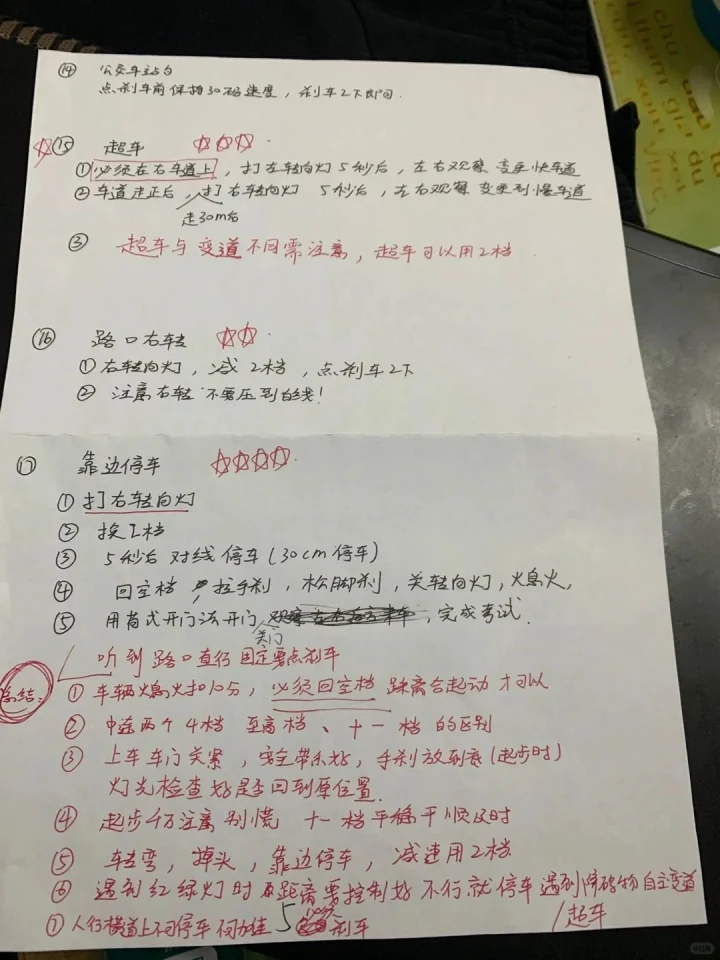 ⑭ 公交车站台
点刹车前保持30码速度，刹车2下即可.
⑮ 超车 ☆☆☆.
①必须在右车道上，打左转向灯5秒后，左右观察 变更快车道
②车道走正后，打右转向灯 5秒后，左右观察 变更到慢车道
走30m后
③ 超车与变道不同需注意，超车可以用2档.
⑯ 路口右转 ☆☆.
①右转向灯，减2档，点刹车2下
② 注意右转 不要压到白线！
⑰ 靠边停车 ☆☆☆☆.
① 打右转向灯
② 换1档
③ 5秒后 对线停车(30cm停车)
④ 回空档，拉手刹，松脚刹，关转向灯，火熄火，
⑤ 用荷式开门法开门，完成考试.
关门
听到路口直行固定要点刹车
总结：
① 车辆熄火扣10分，必须回空档 踩离合起动才可以
② 中途两个4档 至高档、十一档的区别
③ 上车车门关紧，安全带系好，手刹放到底(起步时)
灯光检查好是否回到原位置.
④ 起步千万注意别慌 十一档平稳干顺及时
⑤ 转弯，掉头，靠边停车，减速用2档
⑥ 遇到红绿灯时 距离要控制好 不行就停车 遇到障碍物自主变道
/超车
⑦ 人行横道上不可停车 不可 刹车